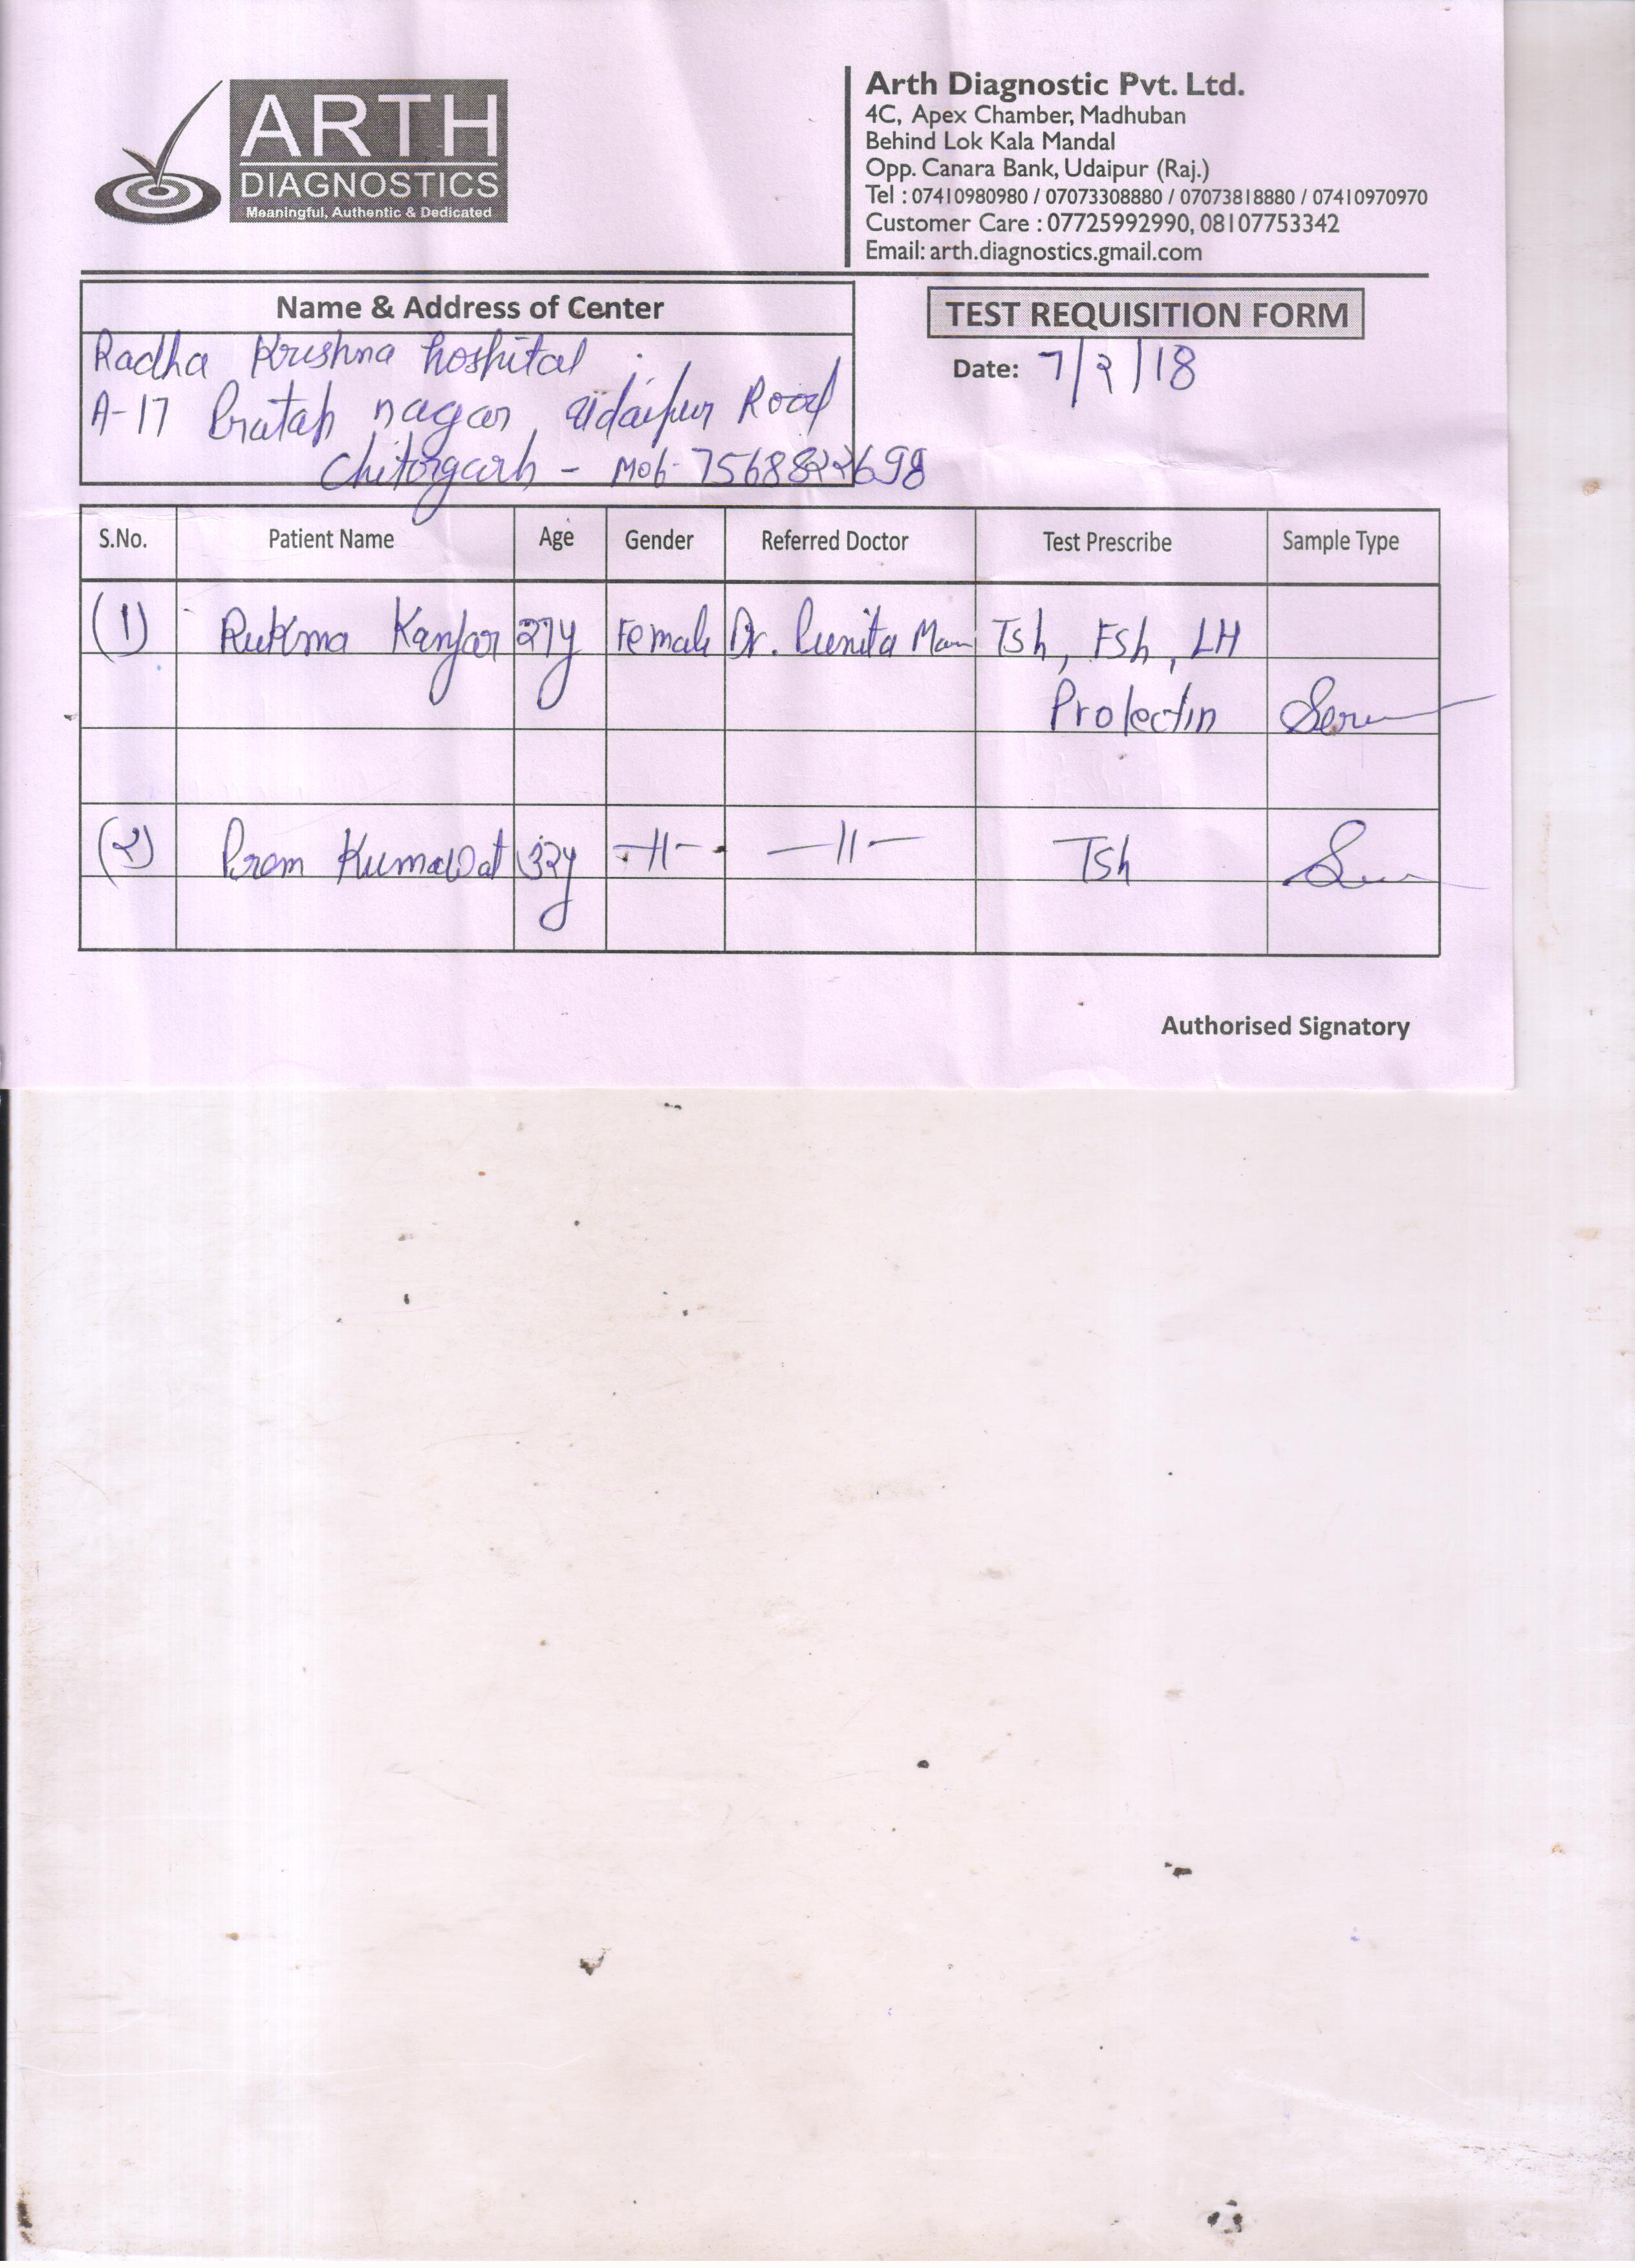 ARTH
DIAGNOSTICS
Meaningful, Authentic & Dedicated
Arth Diagnostic Pvt. Ltd.
4C, Apex Chamber, Madhuban
Behind Lok Kala Mandal
Opp. Canara Bank, Udaipur (Raj.)
Tel : 07410980980 / 07073308880 / 07073818880 / 07410970970
Customer Care : 07725992990, 08107753342
Email: arth.diagnostics.gmail.com
Name & Address of Center
Radha Krishna hospital
A-17 Pratap nagar udaipur Road
Chitorgarh - Mob- 7568822698
TEST REQUISITION FORM
Date: 7/2/18
S.No. Patient Name Age Gender Referred Doctor Test Prescribe Sample Type
(1) Rukma Kanjar 27y Female Dr. Punita Mam Tsh, Fsh, LH
Prolectin Serum
(2) Prem Kumawat 32y -||- -||- Tsh
Authorised Signatory